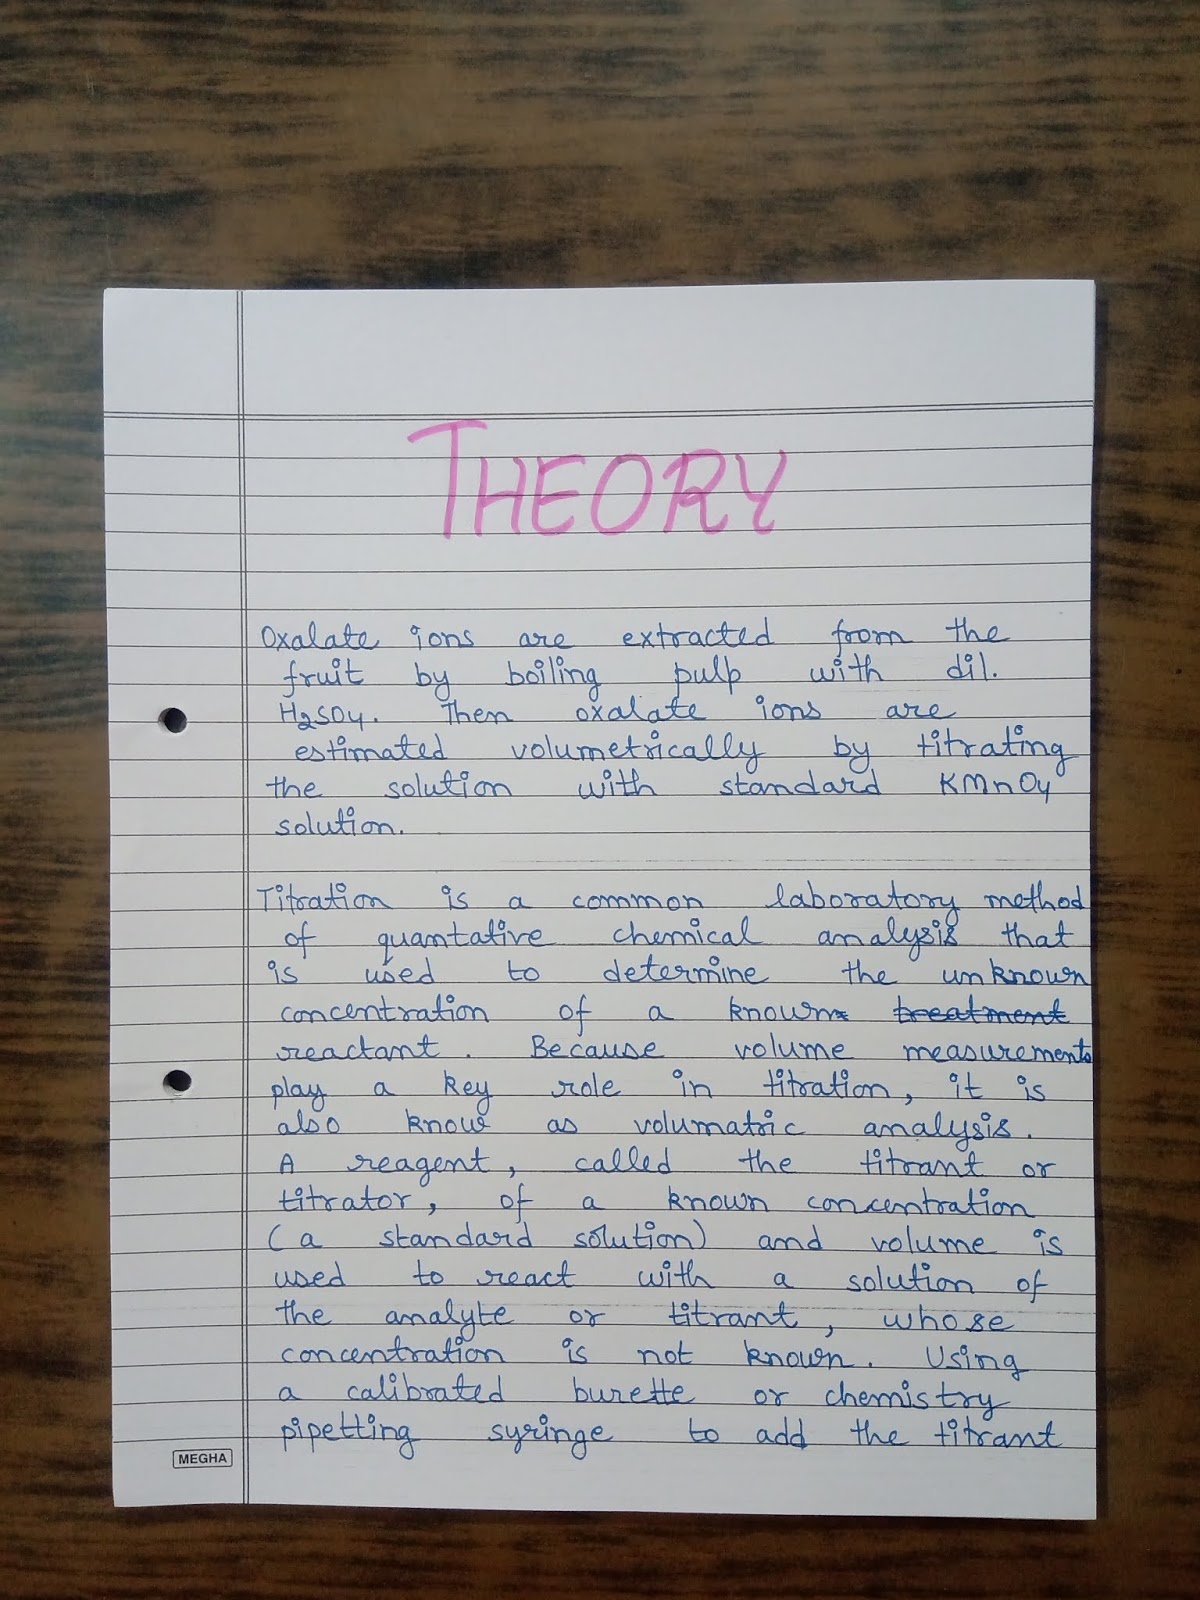 THEORY
Oxalate ions are extracted from the
fruit by boiling pulp with dil.
H2SO4. Then oxalate ions are
estimated volumetrically by titrating
the solution with standard KMnO4
solution.
Titration is a common laboratory method
of quantative chemical analysis that
is used to determine the unknown
concentration of a known treatment
reactant. Because volume measurements
play a key role in titration, it is
also know as volumatric analysis.
A reagent, called the titrant or
titrator, of a known concentration
(a standard solution) and volume is
used to react with a solution of
the analyte or titrant, whose
concentration is not known. Using
a calibrated burette or chemistry
pipetting syringe to add the titrant
MEGHA